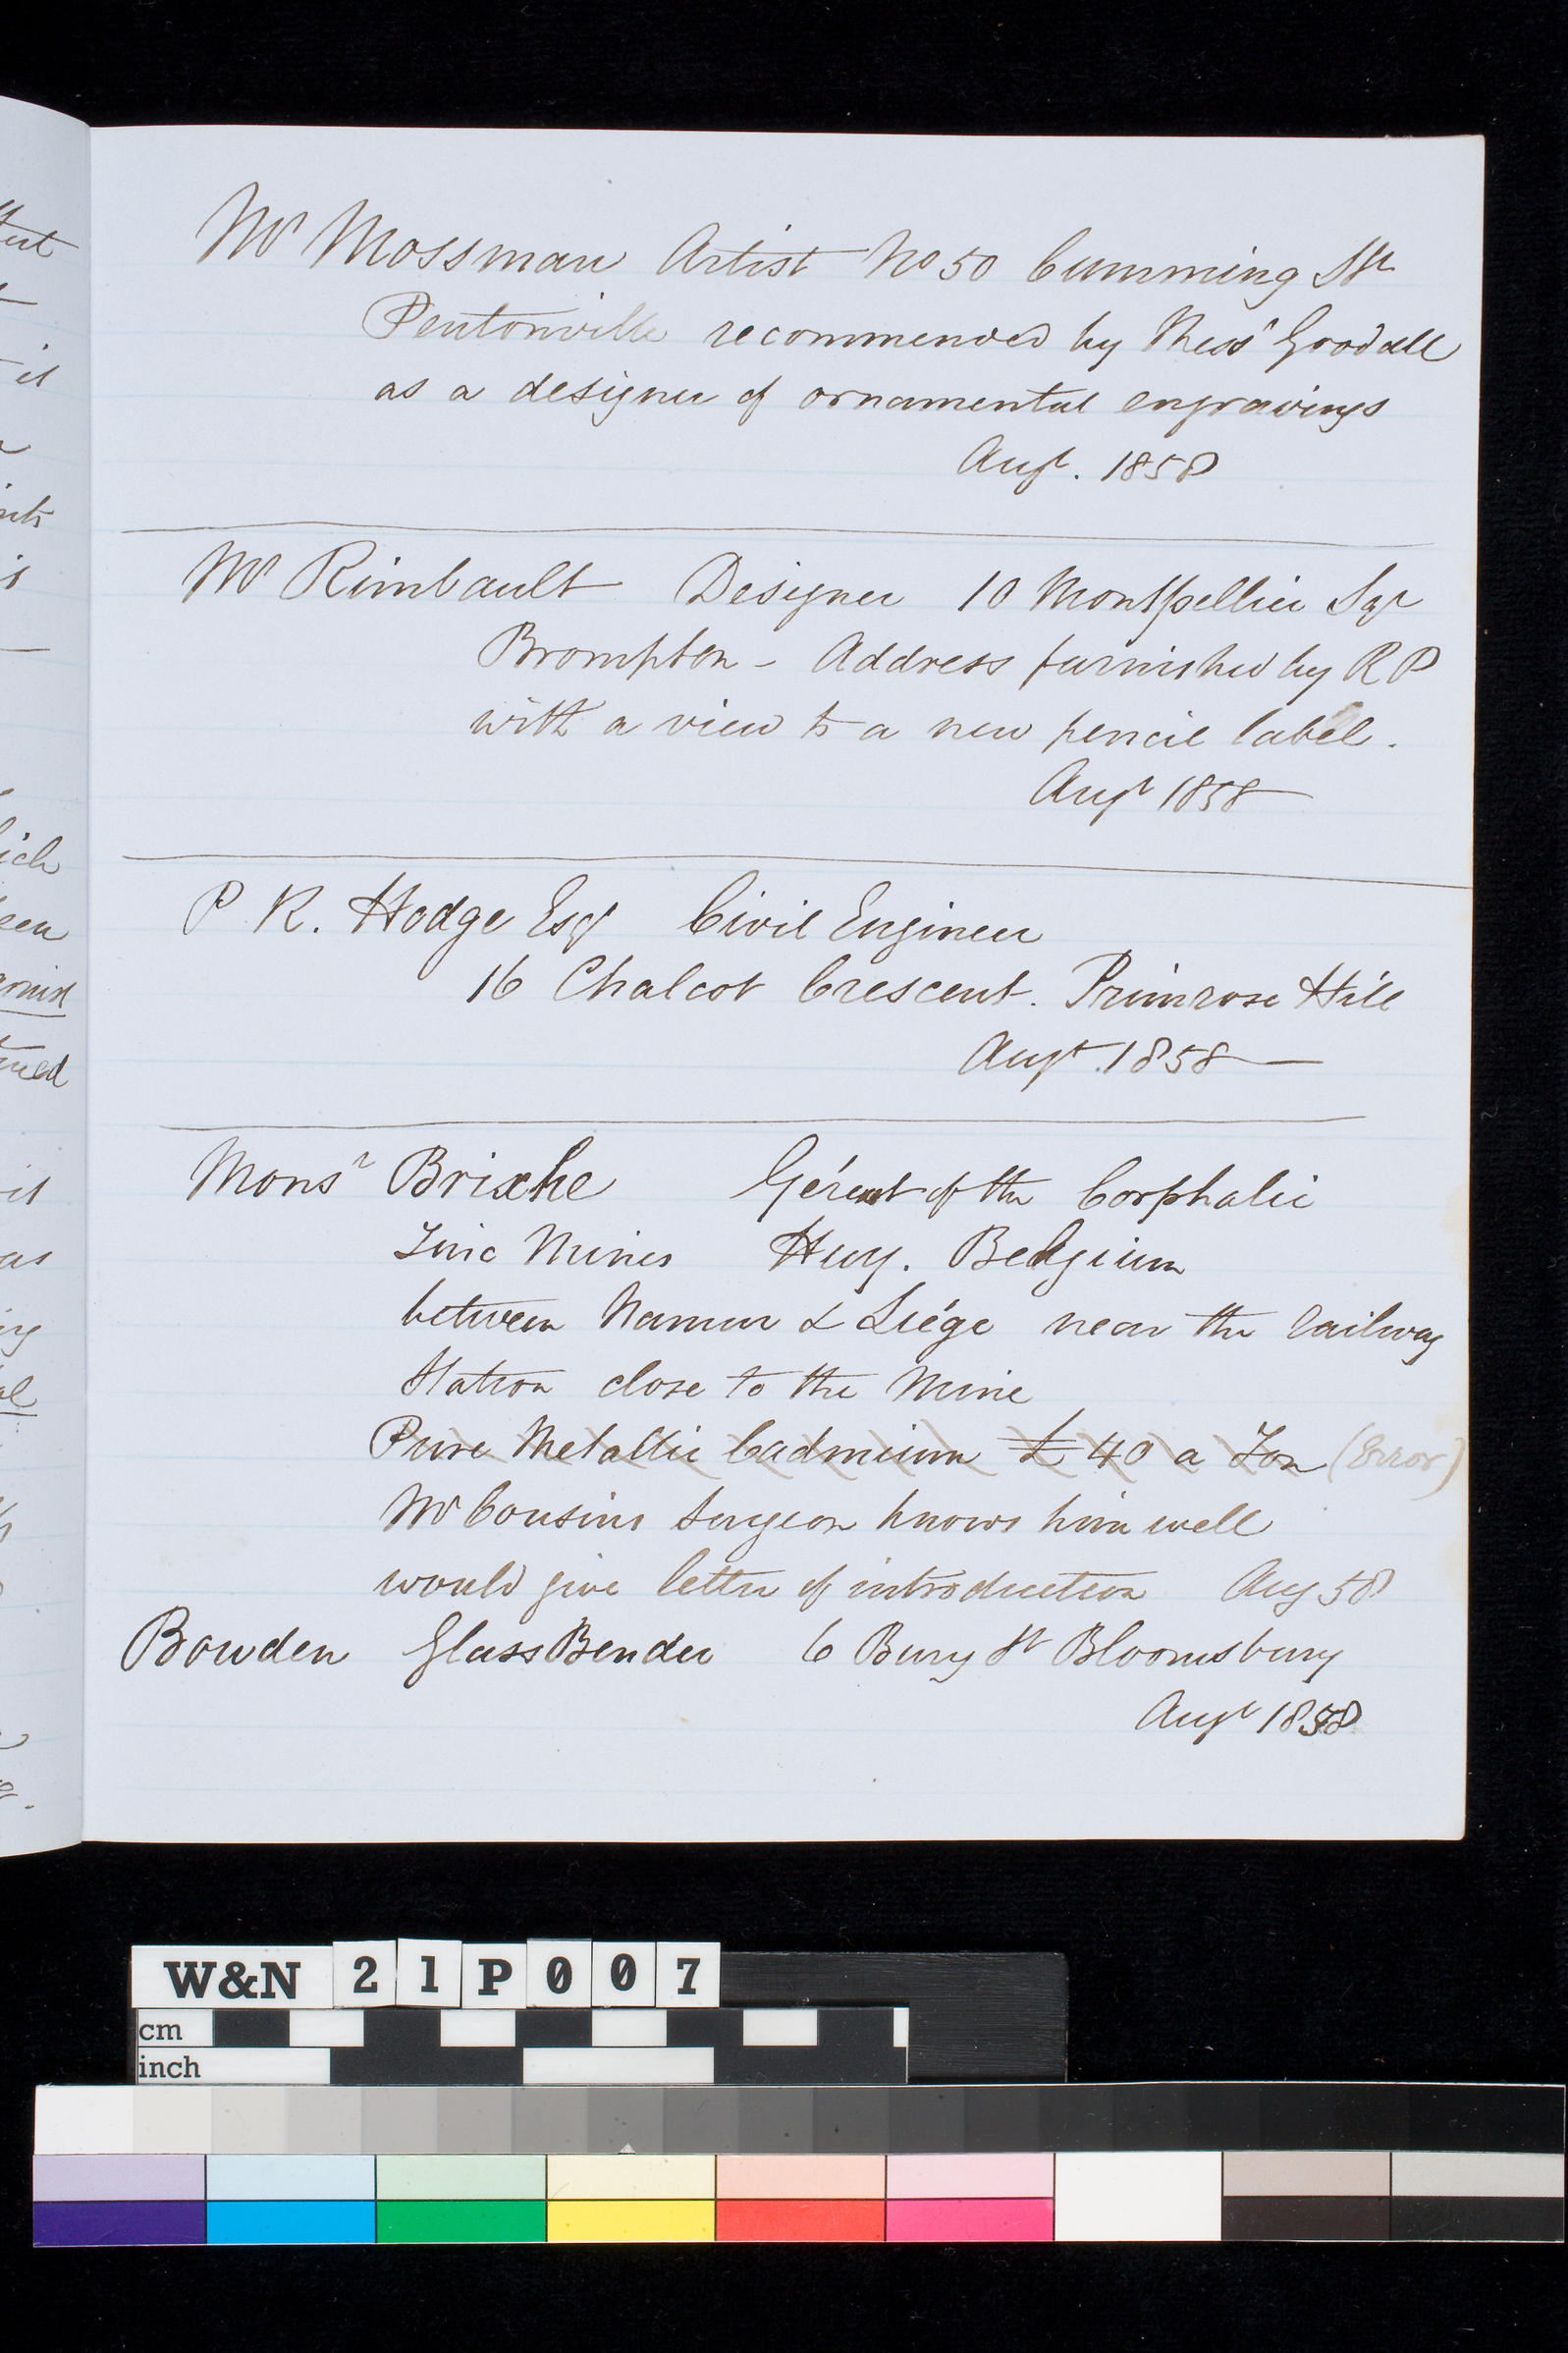 Mr Mossman Artist No 50 Cumming St
Pentonville recommended by Messrs Goodall
as a designer of ornamental engravings
Augt. 1858
Mr Rimbault Designer 10 Montpellier Sqr
Brompton - Address furnished by R P
with a view to a new pencil label.
Augt 1858
P. R. Hodge Esqr Civil Engineer
16 Chalcot Crescent. Primrose Hill
Augt. 1858
Monsr Brixhe Gérent of the Corphalie
Zinc Mines Huy. Belgium
between Namur & Liége near the railway
Station close to the Mine
Pure Metallic Cadmium £40 a Ton (Error)
Mr Cousins Surgeon knows him well
would give letter of introduction Aug 58
Bowden Glass Bender 6 Bury St Bloomsbury
Augt 1858
W&N 21P007
cm
inch